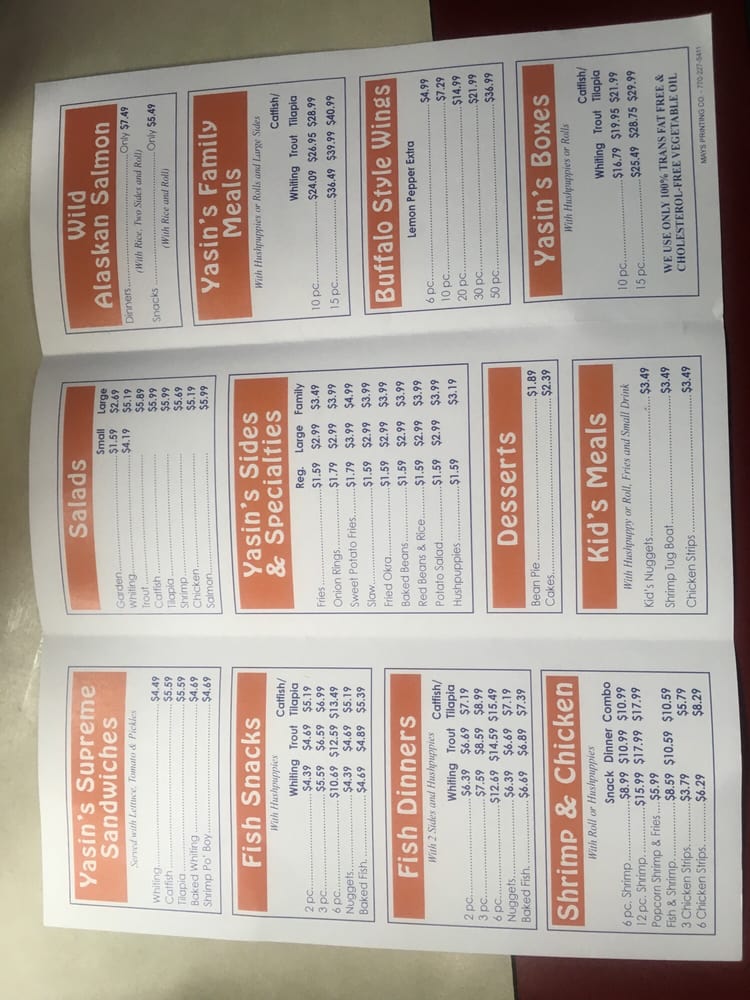 Yasin's Supreme
Sandwiches
Served with Lettuce, Tomato & Pickles
Whiting...$4.49
Catfish...$5.59
Tilapia...$5.59
Baked Whiting...$4.69
Shrimp Po' Boy...$4.69
Fish Snacks
With Hushpuppies
Catfish/
Whiting Trout Tilapia
2 pc...$4.39 $4.69 $5.19
3 pc...$5.59 $6.59 $6.99
6 pc...$10.69 $12.59 $13.49
Nuggets...$4.39 $4.69 $5.19
Baked Fish...$4.69 $4.89 $5.39
Fish Dinners
With 2 Sides and Hushpuppies
Catfish/
Whiting Trout Tilapia
2 pc...$6.39 $6.69 $7.19
3 pc...$7.59 $8.59 $8.99
6 pc...$12.69 $14.59 $15.49
Nuggets...$6.39 $6.69 $7.19
Baked Fish...$6.69 $6.89 $7.39
Shrimp & Chicken
With Roll or Hushpuppies
Snack Dinner Combo
6 pc. Shrimp...$8.99 $10.99 $10.99
12 pc. Shrimp...$15.99 $17.99 $17.99
Popcorn Shrimp & Fries...$5.99
Fish & Shrimp...$8.59 $10.59 $10.59
3 Chicken Strips...$3.79 $5.79
6 Chicken Strips...$6.29 $8.29
Salads
Small Large
Garden...$1.59 $2.69
Whiting...$4.19 $5.19
Trout...$5.89
Catfish...$5.99
Tilapia...$5.99
Shrimp...$5.69
Chicken...$5.19
Salmon...$5.99
Yasin's Sides
& Specialties
Reg. Large Family
Fries...$1.59 $2.99 $3.49
Onion Rings...$1.79 $2.99 $3.99
Sweet Potato Fries...$1.79 $3.99 $4.99
Slaw...$1.59 $2.99 $3.99
Fried Okra...$1.59 $2.99 $3.99
Baked Beans...$1.59 $2.99 $3.99
Red Beans & Rice...$1.59 $2.99 $3.99
Potato Salad...$1.59 $2.99 $3.99
Hushpuppies...$1.59 $3.19
Desserts
Bean Pie...$1.89
Cakes...$2.39
Kid's Meals
With Hushpuppy or Roll, Fries and Small Drink
Kid's Nuggets...$3.49
Shrimp Tug Boat...$3.49
Chicken Strips...$3.49
Wild
Alaskan Salmon
Dinners...Only $7.49
(With Rice, Two Sides and Roll)
Snacks...Only $5.49
(With Rice and Roll)
Yasin's Family
Meals
With Hushpuppies or Rolls and Large Sides
Catfish/
Whiting Trout Tilapia
10 pc...$24.09 $26.95 $28.99
15 pc...$36.49 $39.99 $40.99
Buffalo Style Wings
Lemon Pepper Extra
6 pc...$4.99
10 pc...$7.29
20 pc...$14.99
30 pc...$21.99
50 pc...$36.99
Yasin's Boxes
With Hushpuppies or Rolls
Catfish/
Whiting Trout Tilapia
10 pc...$16.79 $19.95 $21.99
15 pc...$25.49 $28.75 $29.99
WE USE ONLY 100% TRANS FAT FREE &
CHOLESTEROL-FREE VEGETABLE OIL
MAYS PRINTING CO. - 770-227-5411